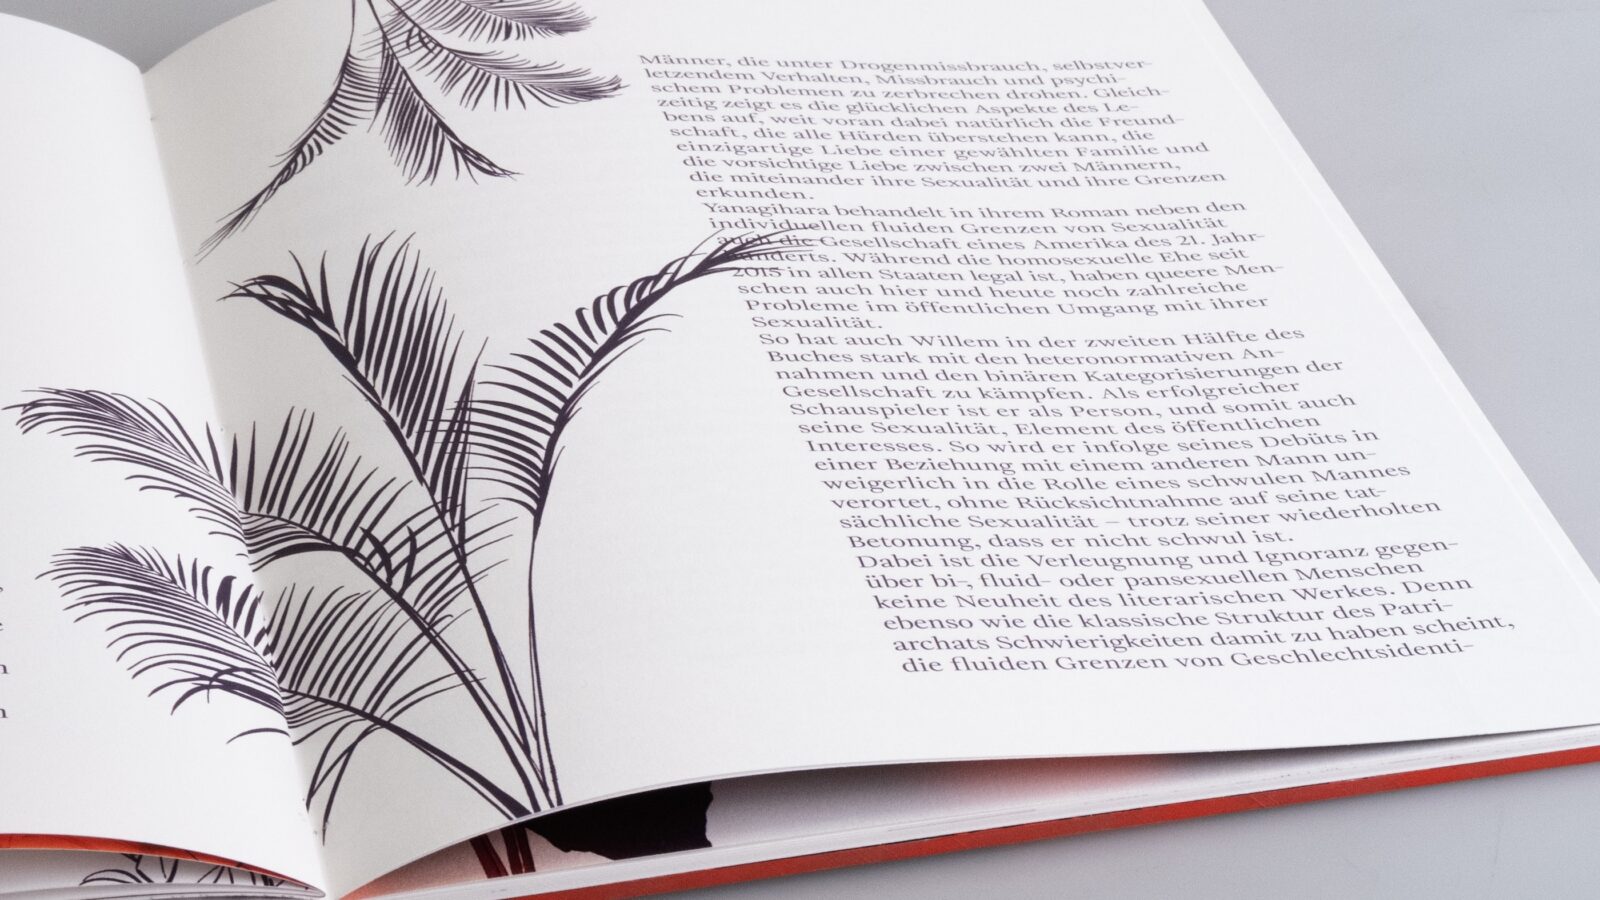 Männer, die unter Drogenmissbrauch, selbstver-
letzendem Verhalten, Missbrauch und psychi-
schem Problemen zu zerbrechen drohen. Gleich-
zeitig zeigt es die glücklichen Aspekte des Le-
bens auf, weit voran dabei natürlich die Freund-
schaft, die alle Hürden überstehen kann, die
einzigartige Liebe einer gewählten Familie und
die vorsichtige Liebe zwischen zwei Männern,
die miteinander ihre Sexualität und ihre Grenzen
erkunden.
Yanagihara behandelt in ihrem Roman neben den
individuellen fluiden Grenzen von Sexualität
auch die Gesellschaft eines Amerika des 21. Jahr-
hunderts. Während die homosexuelle Ehe seit
2015 in allen Staaten legal ist, haben queere Men-
schen auch hier und heute noch zahlreiche
Probleme im öffentlichen Umgang mit ihrer
Sexualität.
So hat auch Willem in der zweiten Hälfte des
Buches stark mit den heteronormativen An-
nahmen und den binären Kategorisierungen der
Gesellschaft zu kämpfen. Als erfolgreicher
Schauspieler ist er als Person, und somit auch
seine Sexualität, Element des öffentlichen
Interesses. So wird er infolge seines Debüts in
einer Beziehung mit einem anderen Mann un-
weigerlich in die Rolle eines schwulen Mannes
verortet, ohne Rücksichtnahme auf seine tat-
sächliche Sexualität – trotz seiner wiederholten
Betonung, dass er nicht schwul ist.
Dabei ist die Verleugnung und Ignoranz gegen-
über bi-, fluid- oder pansexuellen Menschen
keine Neuheit des literarischen Werkes. Denn
ebenso wie die klassische Struktur des Patri-
archats Schwierigkeiten damit zu haben scheint,
die fluiden Grenzen von Geschlechtsidenti-